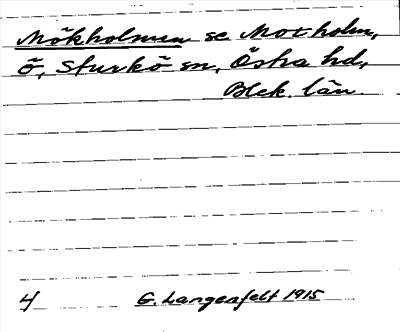 Mökholmen se Moxholm,
ö, Sturkö sn, Östra hd,
Blek. län.
4 G. Langenfelt 1915